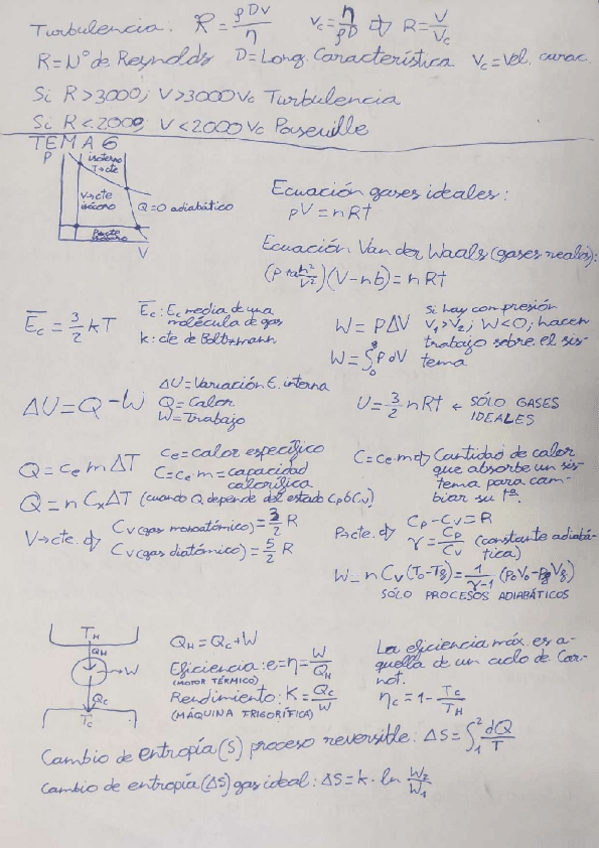 Turbulencia. R = ρDv/η   v_c = η/ρD ⇒ R = V/V_c
R = Nº de Reynolds  D = Long. Característica  V_c = Vel. carac.
Si R > 3000; V > 3000 V_c Turbulencia
Si R < 2000; V < 2000 V_c Poseuille
TEMA 6
P
isotermo
T→cte
V→cte
isócoro
Q=0 adiabático
P→cte
V
Ecuación gases ideales:
pV = nRT
Ecuación Van der Waals (gases reales):
(p + a n²/V²)(V - nb) = nRT
Ēc = 3/2 kT
Ēc: Ec media de una
molécula de gas
k: cte de Boltzmann
W = PΔV
W = ∫ P dV
si hay compresión
V₁ > V₂; W < 0; hacen
trabajo sobre el sis-
tema
ΔU = Q - W
ΔU = Variación E. interna
Q = Calor
W = Trabajo
U = 3/2 nRT ← SÓLO GASES
IDEALES
Q = c_e m ΔT
c_e = calor específico
C = c_e · m = capacidad
calorífica
C = c_e · m ⇒ Cantidad de calor
que absorbe un sis-
tema para cam-
biar su tª.
Q = n C_x ΔT (cuando Q depende del estado C_p ó C_v)
V→cte. ⇒ C_v (gas monoatómico) = 3/2 R
C_v (gas diatómico) = 5/2 R
P→cte. ⇒ C_p - C_v = R
γ = C_p/C_v (constante adiabá-
tica)
W = n C_v (T₀ - T_f) = 1/(γ-1) (p₀V₀ - p_f V_f)
SÓLO PROCESOS ADIABÁTICOS
T_H
Q_H
→W
Q_C
T_C
Q_H = Q_C + W
Eficiencia: e = η = W/Q_H
(MOTOR TÉRMICO)
Rendimiento: K = Q_C/W
(MÁQUINA FRIGORÍFICA)
La eficiencia máx. es a-
quella de un ciclo de Car-
not.
η_c = 1 - T_C/T_H
Cambio de entropía (S) proceso reversible: ΔS = ∫₁² dQ/T
Cambio de entropía (ΔS) gas ideal: ΔS = k · ln W₂/W₁